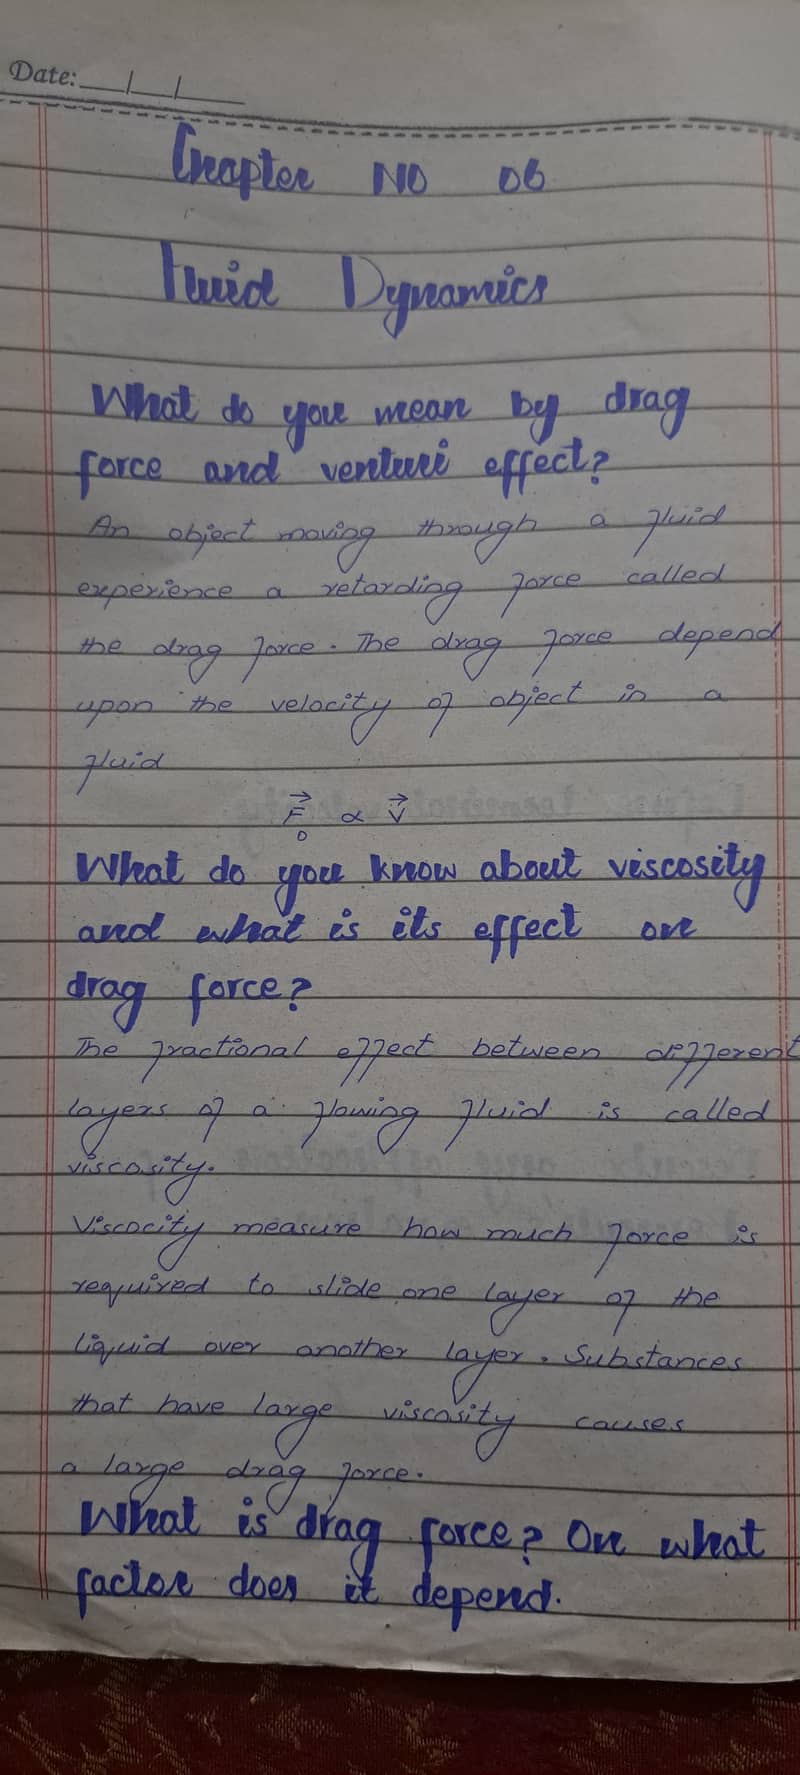 Date: __/__/____
Chapter NO 06
Fluid Dynamics
What do you mean by drag
force and venturi effect?
An object moving through a fluid
experience a retarding force called
the drag force. The drag force depend
upon the velocity of object in a
fluid
F⃗D ∝ V⃗
What do you know about viscosity
and what is its effect on
drag force?
The fractional effect between different
layers of a flowing fluid is called
viscosity.
Viscocity measure how much force is
required to slide one layer of the
liquid over another layer. Substances
that have large viscosity causes
a large drag force.
What is drag force? On what
factor does it depend.